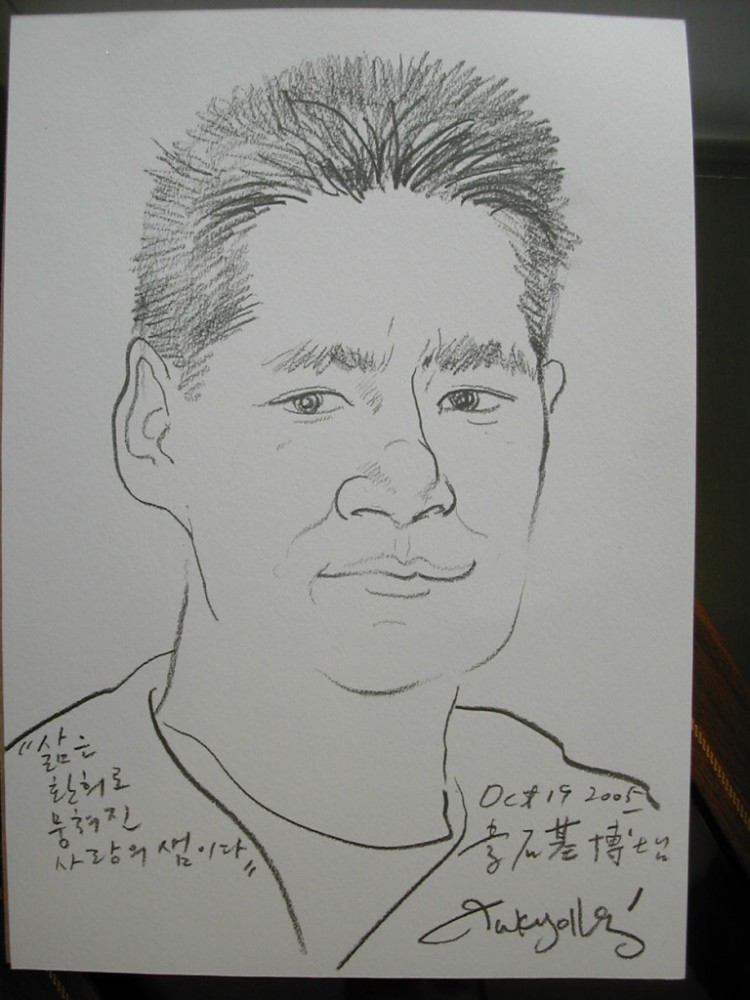 "삶은
환희로
뭉쳐진
사랑의 샘이다"
Oct 19 2005
石基 博士님